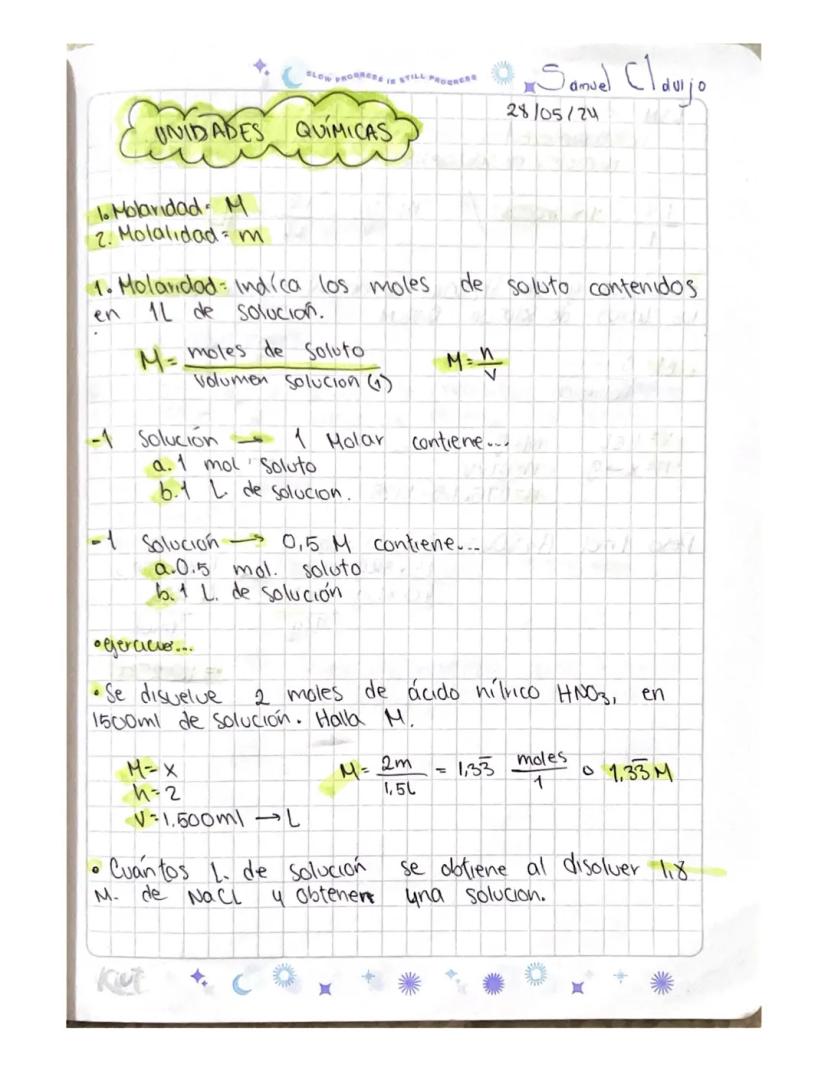 SLOW PROGRESS IS STILL PROGRESS
Samuel Clavijo
28/05/24
UNIDADES QUÍMICAS
1. Molaridad= M
2. Molalidad= m
1. Molaridad= indíca los moles de soluto contenidos
en 1L de solución.
M= moles de soluto / volumen solucion (1) M= n / V
-1 Solución → 1 Molar contiene...
a. 1 mol soluto
b. 1 L de solucion.
-1 Solución → 0,5 M contiene...
a. 0.5 mol. soluto
b. 1 L. de solución
• ejercicio...
• Se disuelve 2 moles de ácido nítrico HNO₃, en
1500ml de solución. Halla M.
M= x M= 2m / 1,5L = 1,33̅ moles / 1 o 1,33̅ M
n= 2
V= 1.500ml → L
• Cuántos L. de solución se obtiene al disolver 1,8
M. de NaCL y obtener una solucion.
Kiut